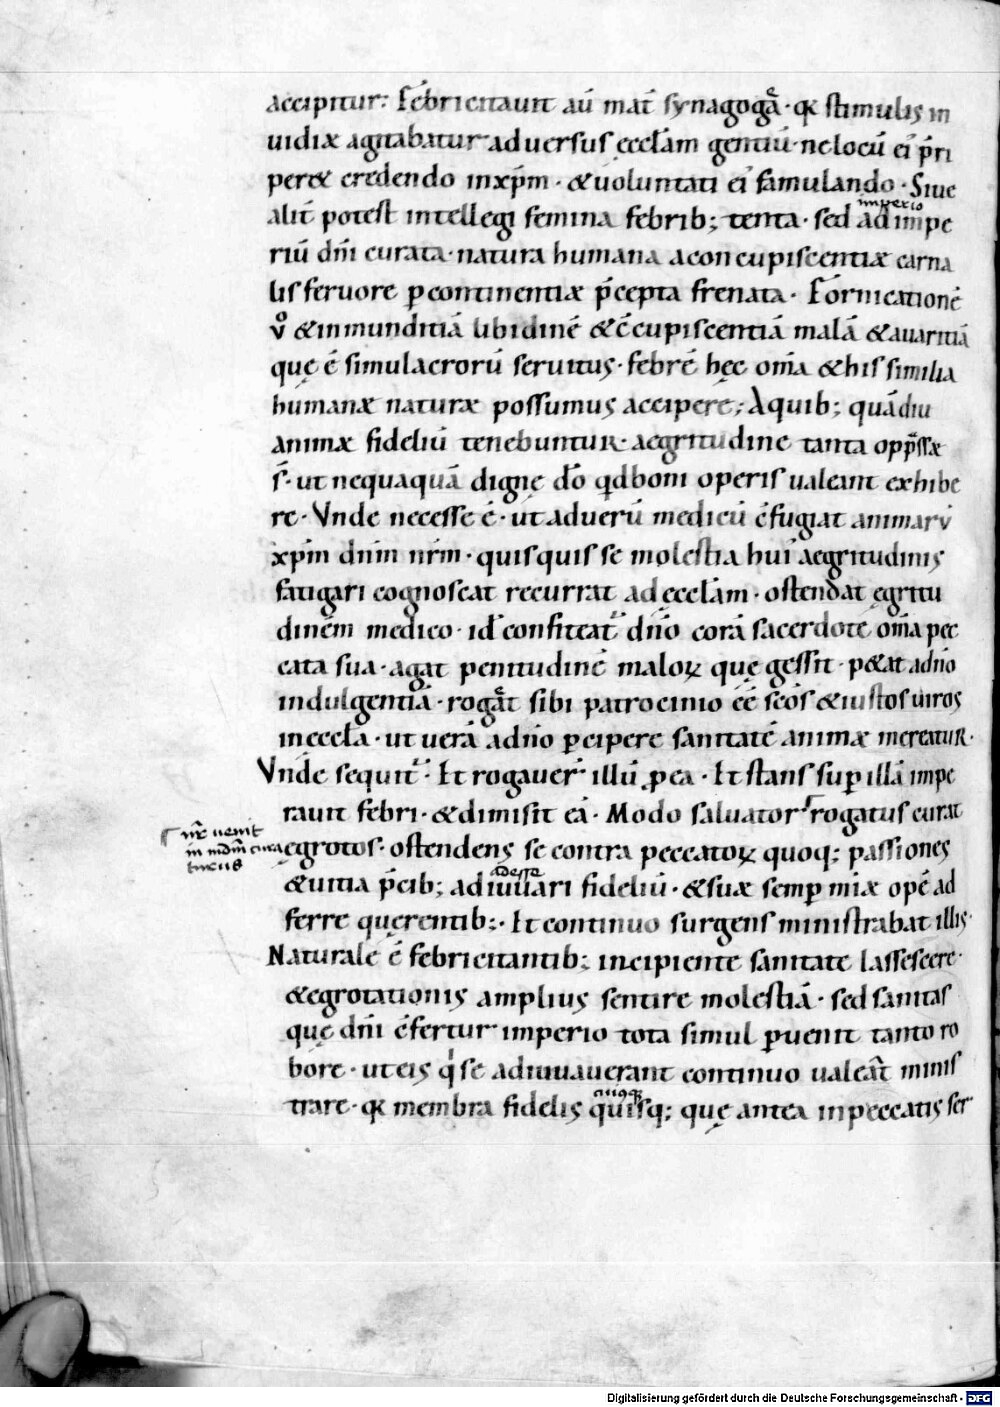 accipitur: Febricitauit aū mat̄ synagogā· qꝛ stimulis in
uidiæ agitabatur aduersus ęccłam gentiū· ne locū ei' p̄ri
peret credendo in xp̄m· & uoluntati ei' famulando· Siue
imperio
alit̄ potest intellegi femina febrib; tenta· sed ad impe
riū dn̄i curata· natura humana a concupiscentiæ carna
lis feruore ꝑ continentiæ p̄cepta frenata· Fornicationē
v̊ & inmunditiā libidinē & c̄cupiscentiā malā & auaritiā
quę ē simulacrorū seruitus· febrē hęc om̄a & his similia
humanæ naturæ possumus accipere; A quib; quādiu
animæ fideliū tenebuntur· aegritudine tanta opp̄ssæ
s̄· ut nequaquā dignę dō qd boni operis ualeant exhibe
re· Vnde necesse ē· ut ad uerū medicū c̄fugiat animarū
xp̄m dn̄m nr̄m· quisquis se molestia hui' aegritudinis
fatigari cognoscat recurrat ad ęccłam· ostendat ęgritu
dinem medico· id' confiteat̄ dn̄o corā sacerdote om̄a pec
cata sua· agat penitudinē maloꝝ quę gessit· p&at a dn̄o
indulgentiā· rogāt sibi patrocinio eē sc̄os & iustos uiros
in ęccła· ut uerā a dn̄o ꝑcipere sanitatē animæ mereatur·
Vnde sequit̄· Et rogauer̄ illū ꝓ ea· Et stans suꝑ illā impe
rauit febri· & dimisit eā· Modo saluator rogatus curat
nr̄ uenit
in mdm̄ cura
turus
ęgrotos· ostendens se contra peccatoꝝ quoq; passiones
adesse
& uitia p̄cib; adiuuari fideliū· & suæ semꝑ mīæ opē ad
ferre quęrentib;· Et continuo surgens ministrabat illis·
Naturale ē febricitantib; incipiente sanitate lassescere·
& egrotationis amplius sentire molestiā· sed sanitas
quę dn̄i c̄fertur imperio tota simul ꝑuenit tanto ro
bore· ut eis q' se adiuuauerant continuo ualeāt minis
trare· qꝛ membra fidelis quisq; quę antea in peccatis ser
Digitalisierung gefördert durch die Deutsche Forschungsgemeinschaft - DFG